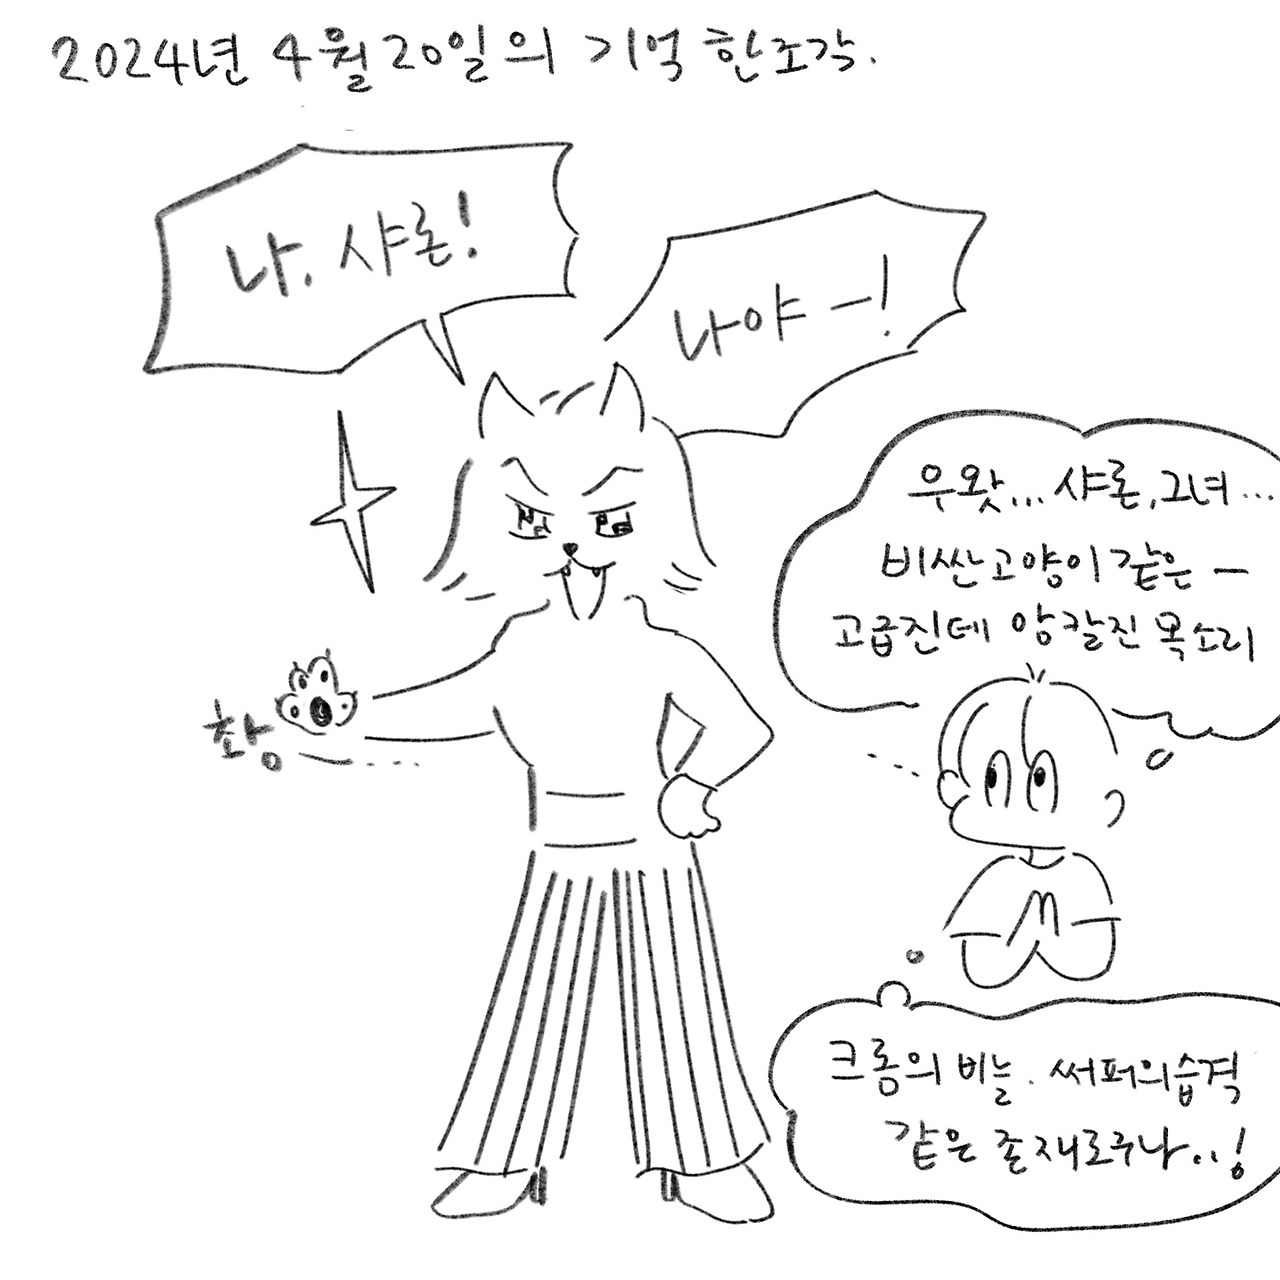 2024년 4월 20일의 기억 한조각.
나, 샤론!
나야 -!
우왓... 샤론, 그녀...
비싼고양이 같은 -
고급진데 앙칼진 목소리
촹
크롱의 비늘. 써퍼의습격
같은 존재로구나..!